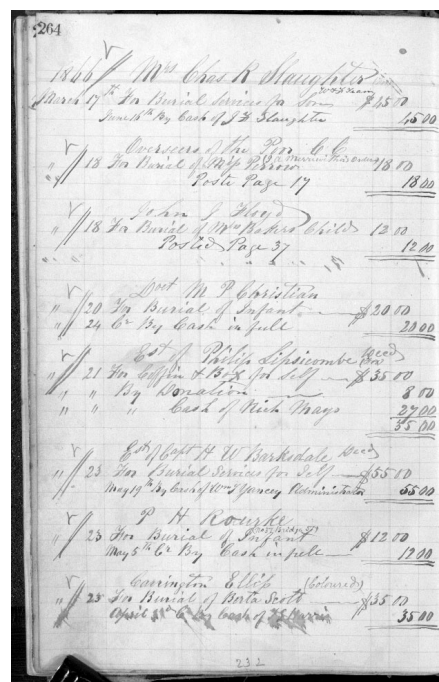 264
1866 Mrs Chas R Slaughter
March 17th For Burial Services for Son $45 00
June 18th By Cash of J F Slaughter 45 00
Overseers of the Poor C. C.
" 18 For Burial of 18 00
Posted Page 17 18 00
John J Floyd
" 18 For Burial of Mrs Bakers Child 12 00
Posted Page 37 12 00
Doct M P Christian
" 20 For Burial of Infant $20 00
" 24 Cr By Cash in full 20 00
Est of Philip Lipsicombe Decd
" 21 For Coffin & Box for Self $35 00
" " By Donation 8 00
" " " Cash of Rich Mays 27 00
35 00
Est of Capt H W Barksdale Decd
" 23 For Burial Services for Self $55 00
May 19th By Cash of Wm T Yancey Administrator 55 00
P H Rourke
" 23 For Burial of Infant $12 00
May 5th Cr By Cash in full 12 00
Carrington Ellis (Coloured)
" 25 For Burial of Berta Scott $35 00
April Cr By Cash of 35 00
232